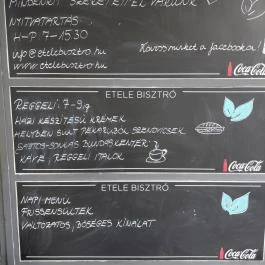 MINDENKIT SZERETETTEL VÁRUNK
NYITVATARTÁS
H-P 7-1530
info@etelebisztro.hu
www.etelebisztro.hu
Kövess minket a facebookon!
Coca-Cola
ETELE BISZTRÓ
REGGELI: 7-9-ig
HÁZI KÉSZÍTÉSŰ KRÉMEK
HELYBEN SÜLT PÉKÁRUBÓL SZENDVICSEK
SAJTOS-SONKÁS BUNDÁSKENYÉR
KÁVÉ, REGGELI ITALOK
Coca-Cola
ETELE BISZTRÓ
NAPI MENÜ
FRISSENSÜLTEK
VÁLTOZATOS, BŐSÉGES KÍNÁLAT
Coca-Cola